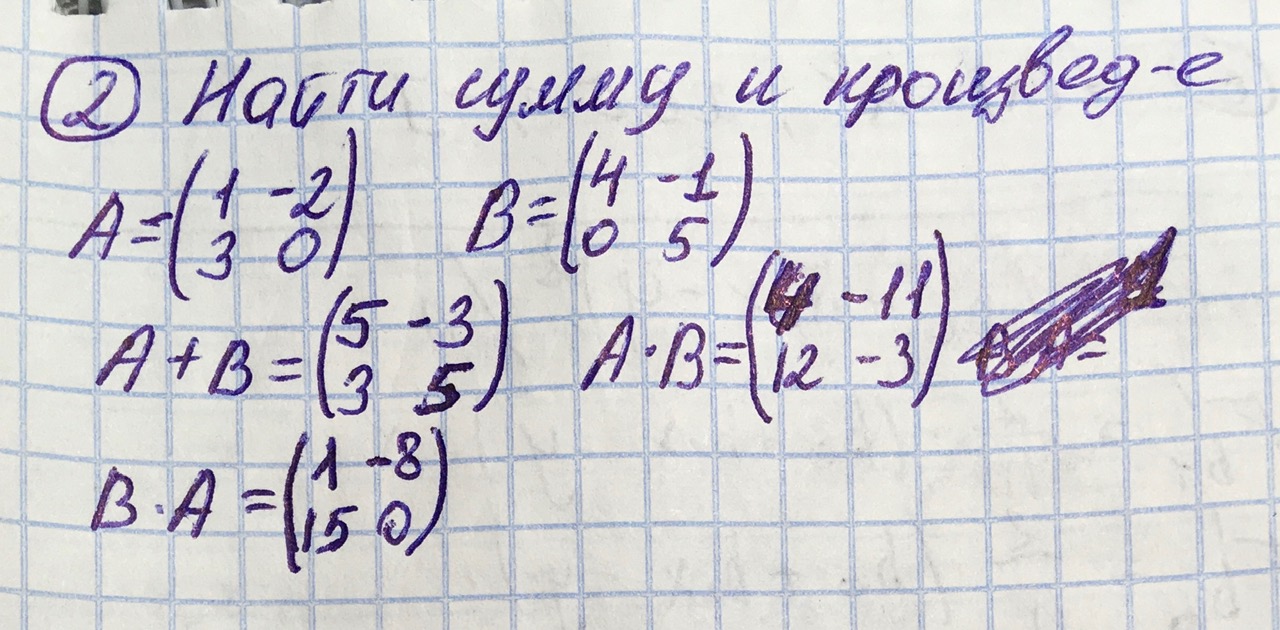 ② Найти сумму и произвед-е
A=(1 -2 B=(4 -1
3 0) 0 5)
A+B=(5 -3 A·B=(4 -11
3 5) 12 -3)
B·A=(1 -8
15 0)